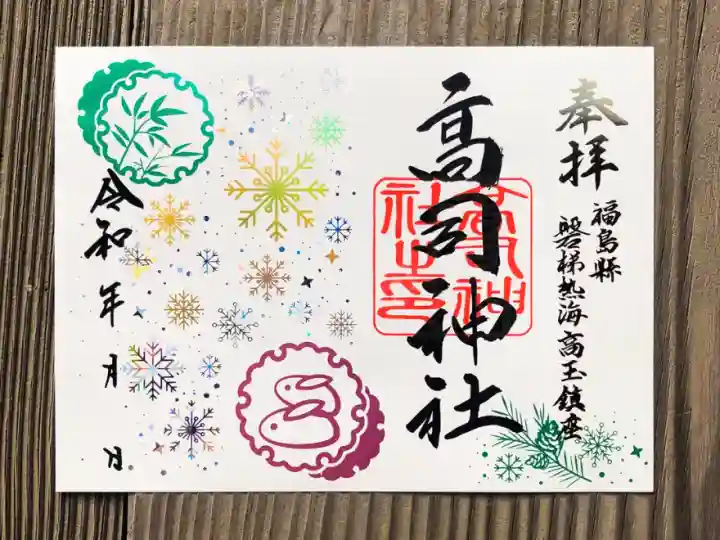 奉拝
福島縣
磐梯熱海高玉鎮座
高司神社
高司神社之印
令和 年 月 日